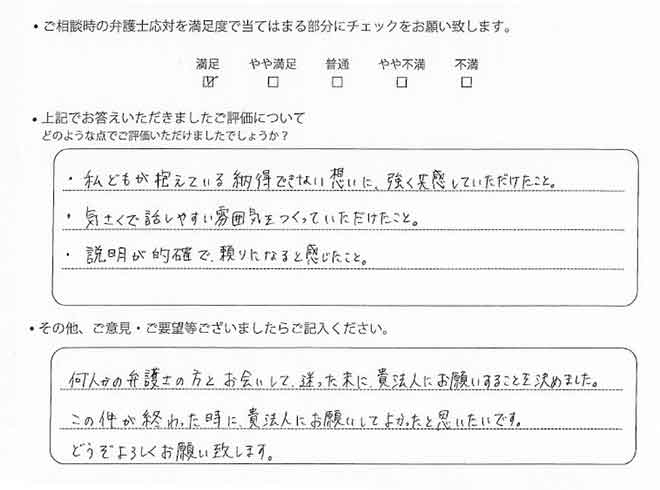 ・ご相談時の弁護士応対を満足度で当てはまる部分にチェックをお願い致します。
満足 やや満足 普通 やや不満 不満
・上記でお答えいただきましたご評価について
どのような点でご評価いただけましたでしょうか？
・私どもが抱えている納得できない想いに、強く共感していただけたこと。
・気さくで話しやすい雰囲気をつくっていただけたこと。
・説明が的確で、頼りになると感じたこと。
・その他、ご意見・ご要望等ございましたらご記入ください。
何人かの弁護士の方とお会いして、迷った末に、貴法人にお願いすることを決めました。
この件が終わった時に、貴法人にお願いしてよかったと思いたいです。
どうぞよろしくお願い致します。